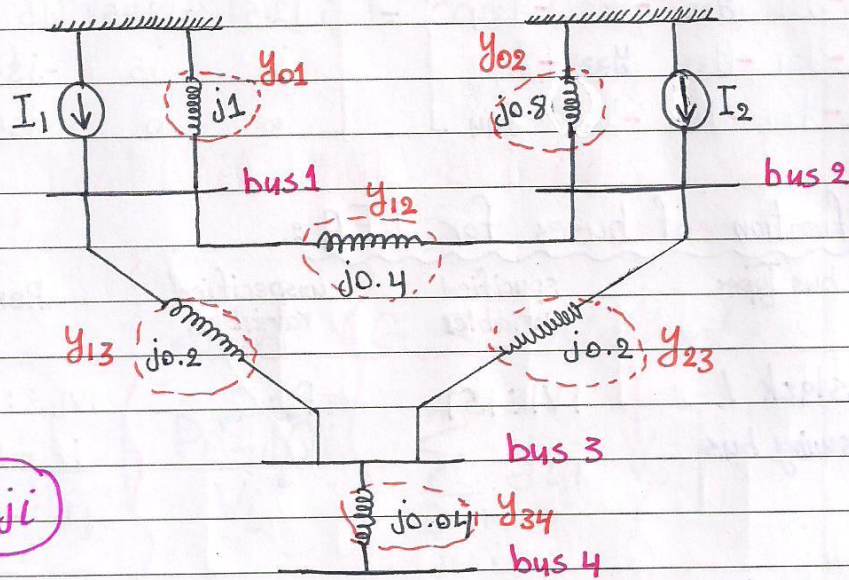 y01
y02
I1
j1
j0.8
I2
bus1
bus 2
y12
j0.4
y13
j0.2
j0.2
y23
bus 3
ji
j0.04
y34
bus 4